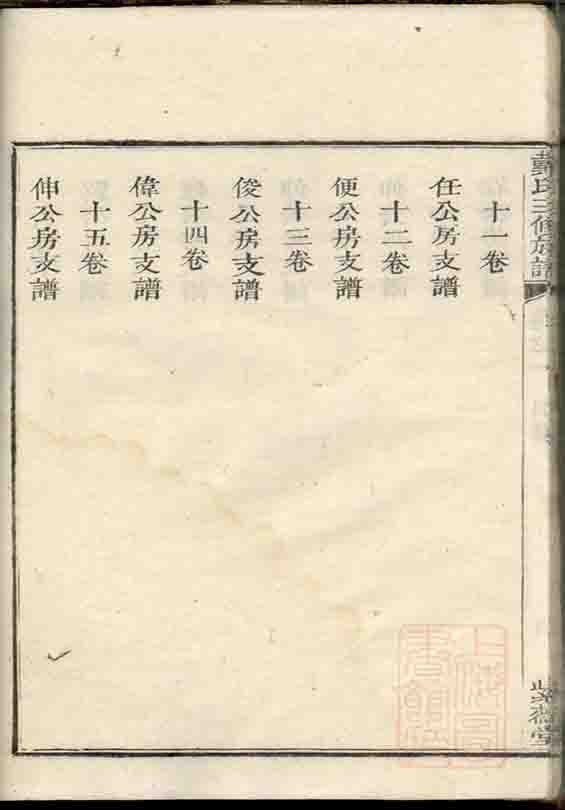 戴氏三修族譜
十一卷
任公房支譜
十二卷
便公房支譜
十三卷
俊公房支譜
十四卷
偉公房支譜
十五卷
伸公房支譜
紫薇堂
上海圖書館藏